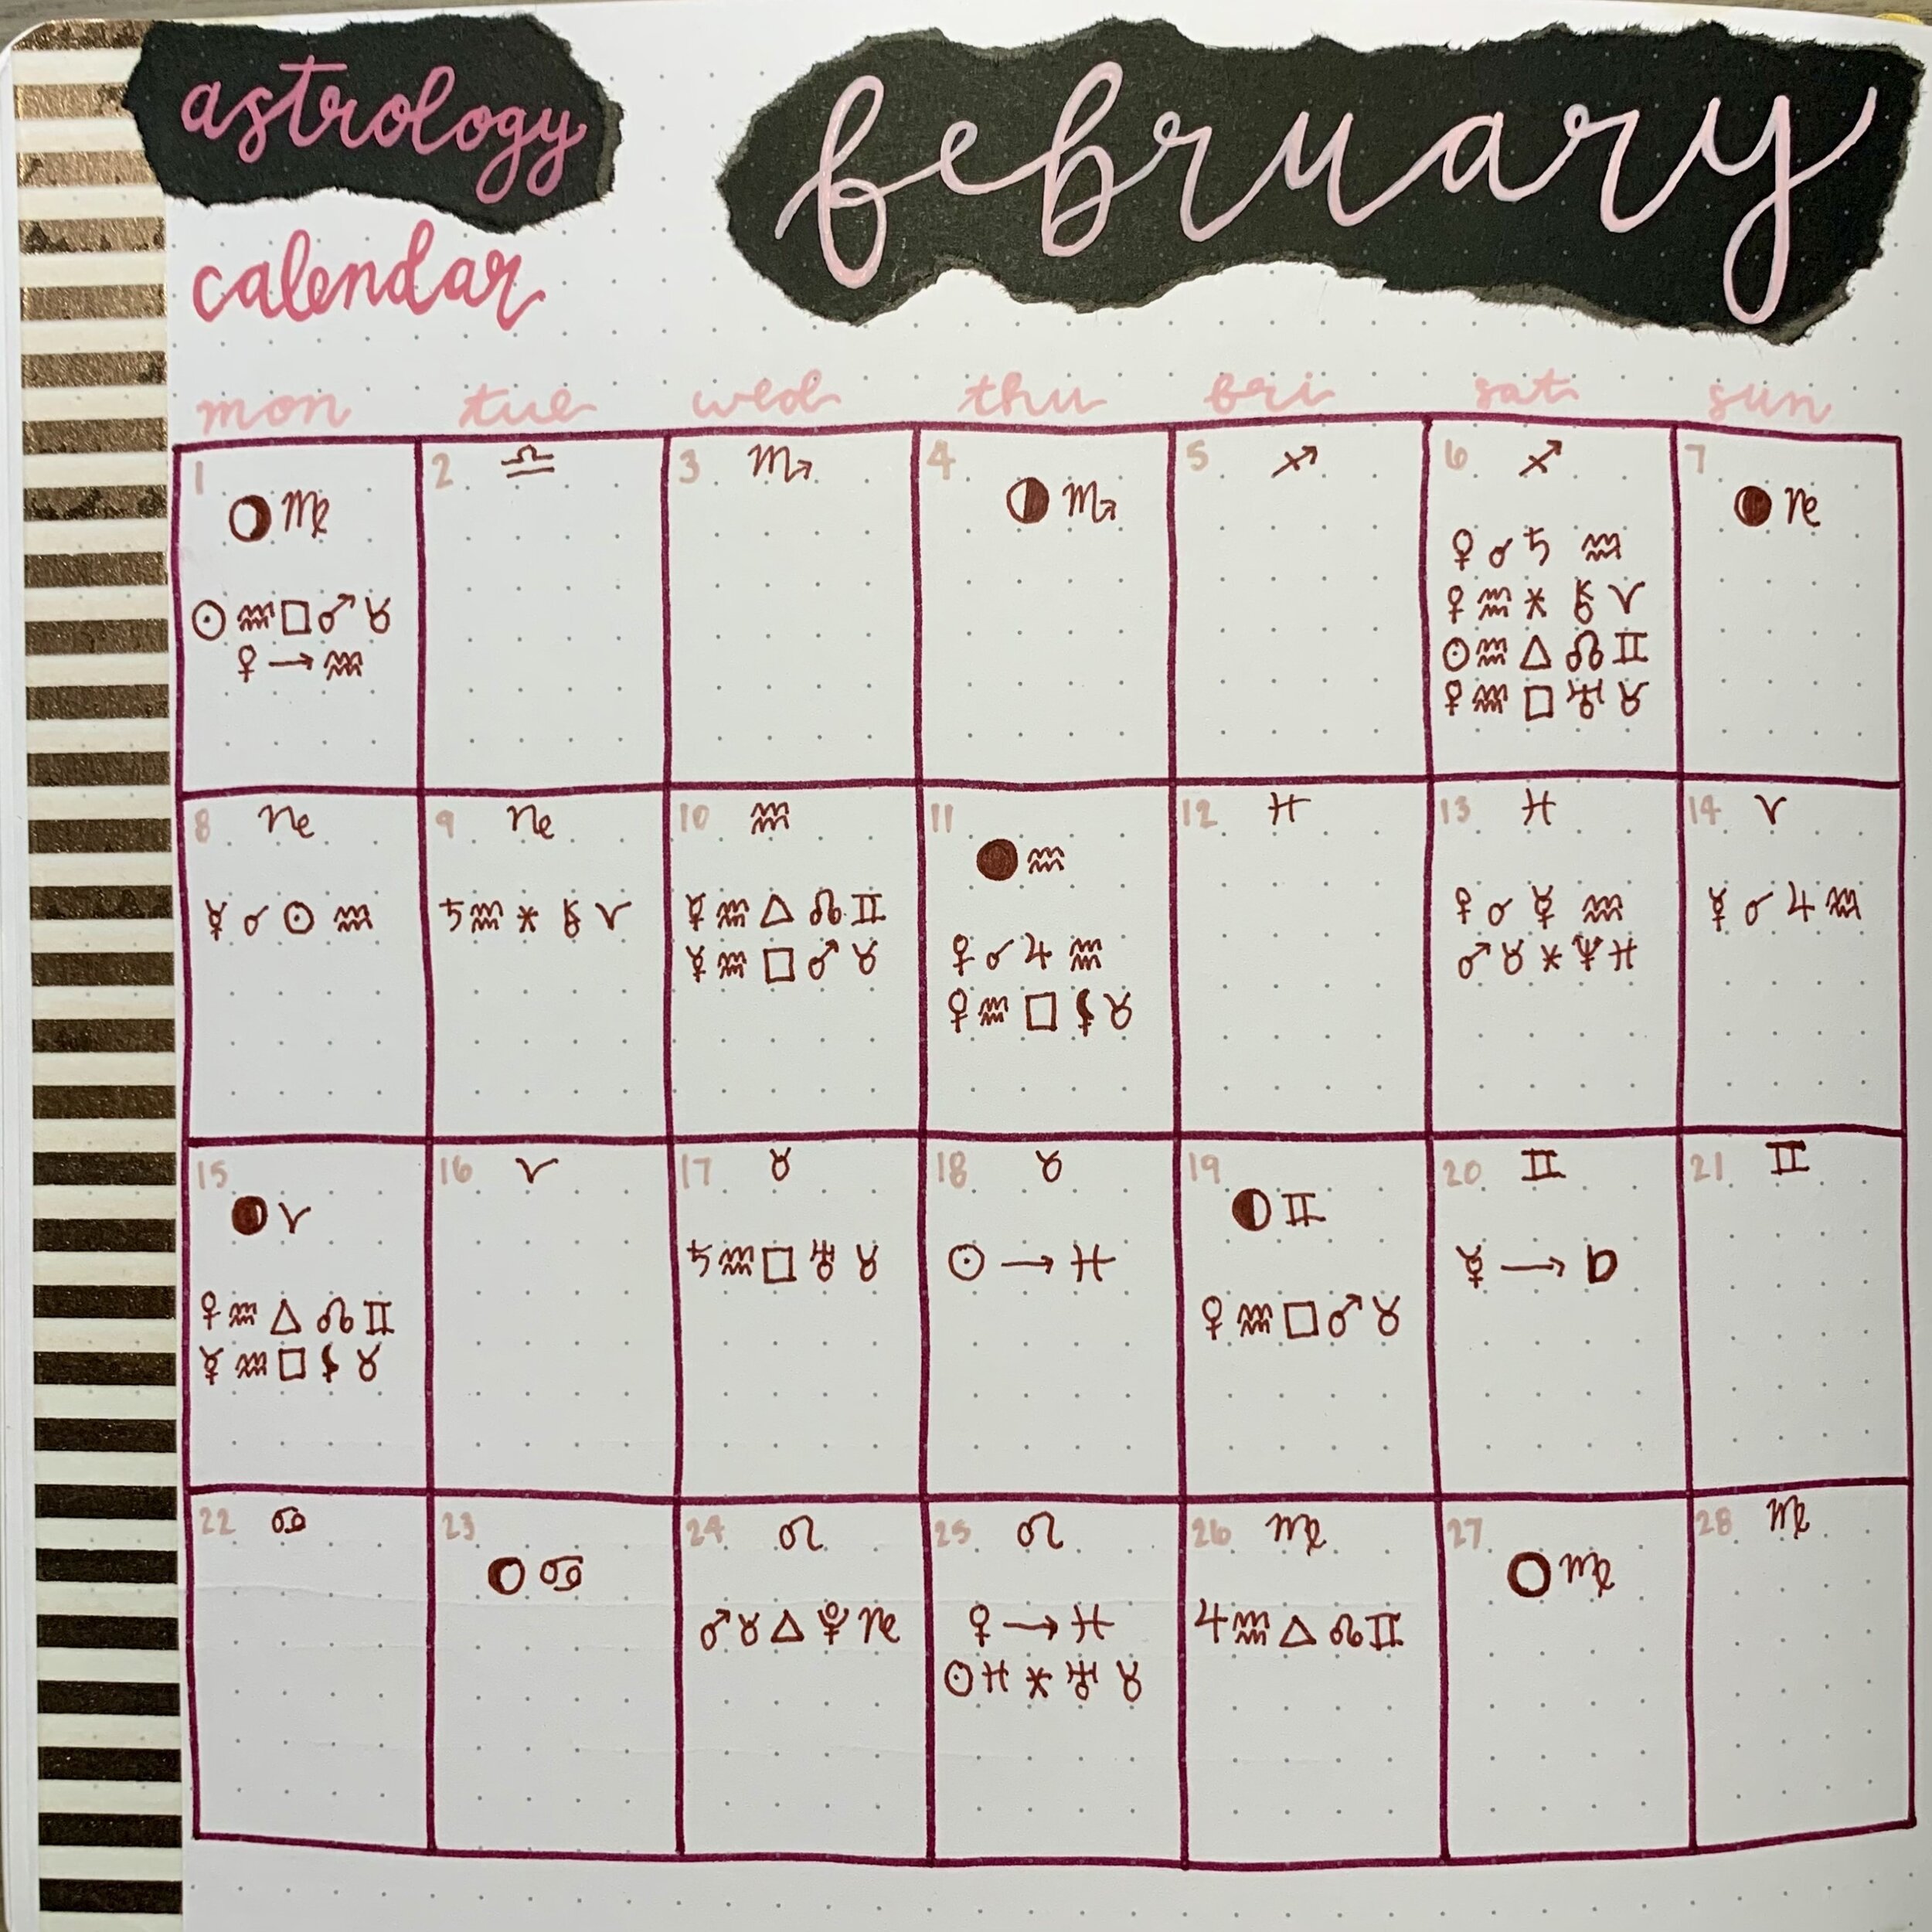 astrology
february
calendar
mon tue wed thu fri sat sun
1 🌖 ♍
☉ ♒ □ ♂ ♉
♀ → ♒
2 ♎
3 ♏
4 🌗 ♏
5 ♐
6 ♐
♀ ☌ ♄ ♒
♀ ♒ ⚹ ⚷ ♈
☉ ♒ △ ☊ ♊
♀ ♒ □ ♅ ♉
7 🌘 ♑
8 ♑
☿ ☌ ☉ ♒
9 ♑
♄ ♒ ⚹ ⚷ ♈
10 ♒
☿ ♒ △ ☊ ♊
☿ ♒ □ ♂ ♉
11 🌑 ♒
♀ ☌ ♃ ♒
♀ ♒ □ ⚸ ♉
12 ♓
13 ♓
♀ ☌ ☿ ♒
♂ ♉ ⚹ ♆ ♓
14 ♈
☿ ☌ ♃ ♒
15 🌒 ♈
♀ ♒ △ ☊ ♊
☿ ♒ □ ⚸ ♉
16 ♈
17 ♉
♄ ♒ □ ♅ ♉
18 ♉
☉ → ♓
19 🌓 ♊
♀ ♒ □ ♂ ♉
20 ♊
☿ → D
21 ♊
22 ♋
23 🌔 ♋
24 ♌
♂ ♉ △ ♇ ♑
25 ♌
♀ → ♓
☉ ♓ ⚹ ♅ ♉
26 ♍
♃ ♒ △ ☊ ♊
27 🌕 ♍
28 ♍